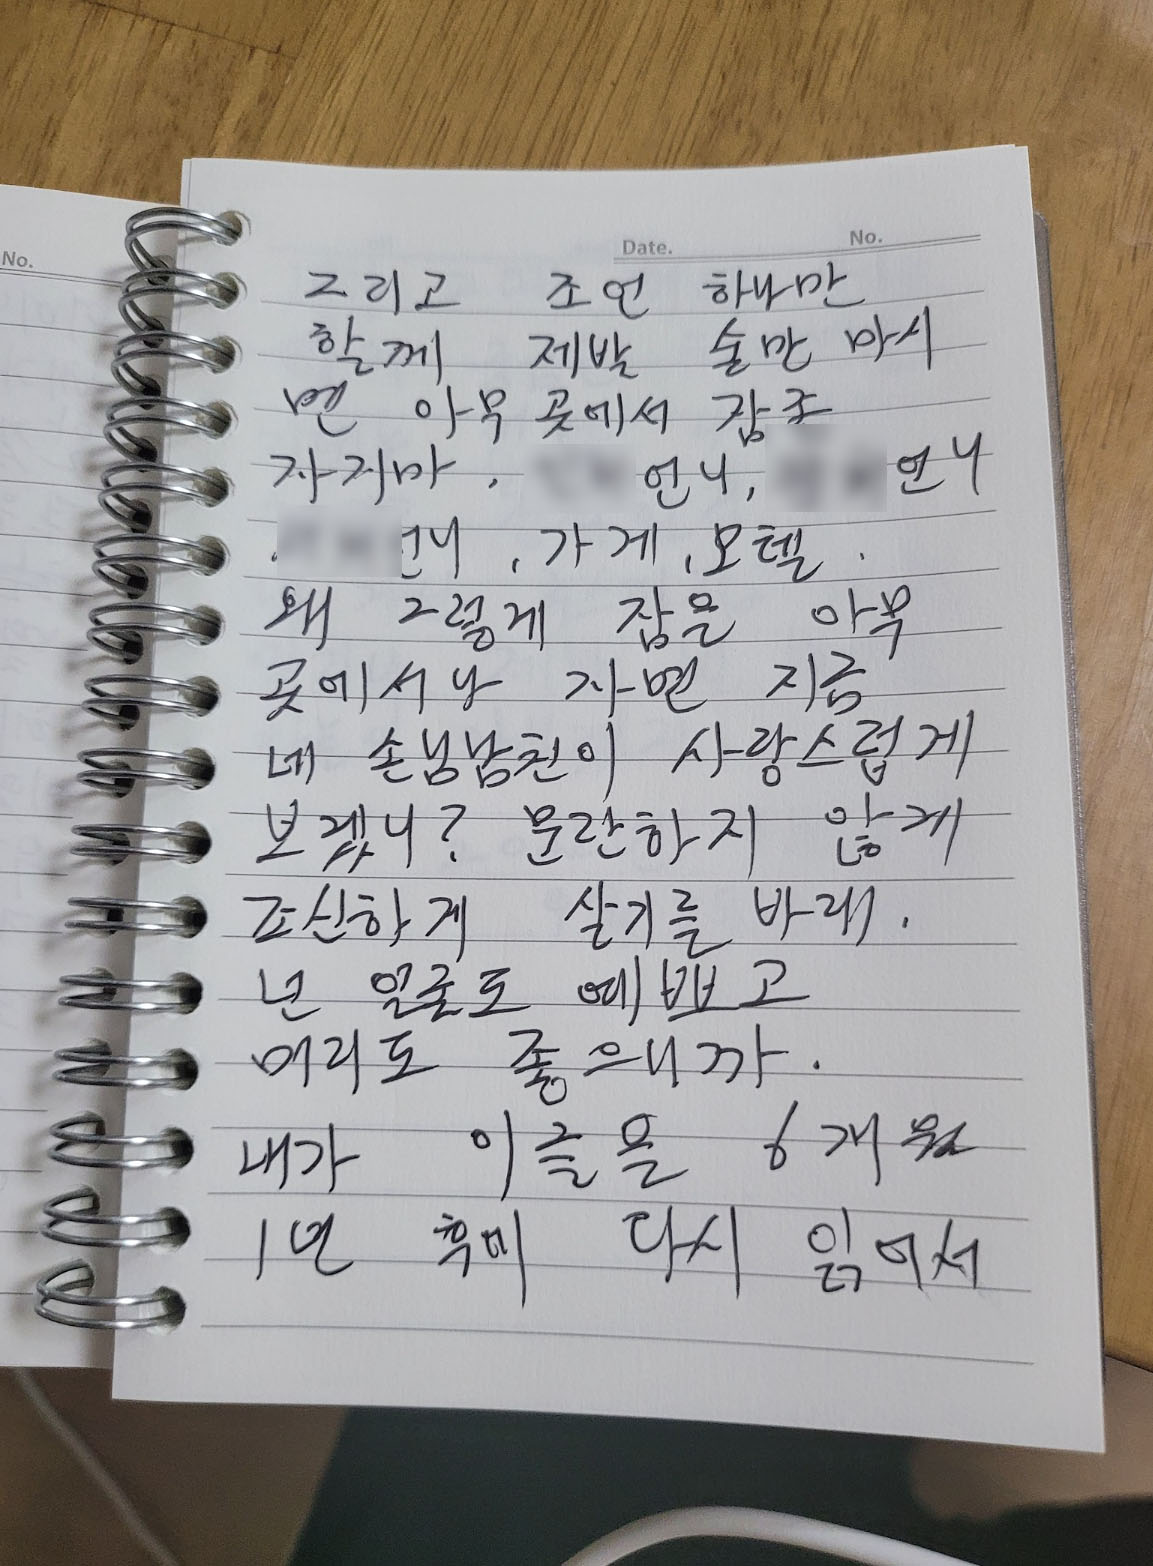 No.
Date. No.
그리고 조언 하나만
할께 제발 술만 마시
면 아무곳에서 잠좀
자지마. 언니, 언니
언니, 가게, 모텔.
왜 그렇게 잠을 아무
곳에서나 자면 지금
네 손님남친이 사랑스럽게
보겠니? 문란하지 않게
조신하게 살기를 바래.
넌 얼굴도 예쁘고
머리도 좋으니까.
내가 이글을 6개월
1년 후에 다시 읽어서